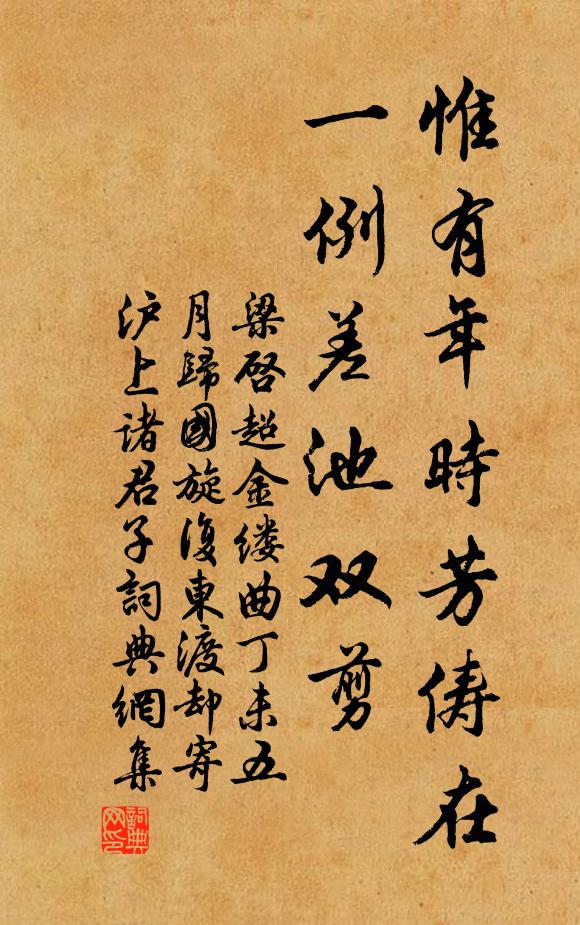 惟有年時芳俦在
一例差池双剪
梁啓超金缕曲丁未五
月歸國旋復東渡却寄
沪上诸君子詞典網集
詞典
网印